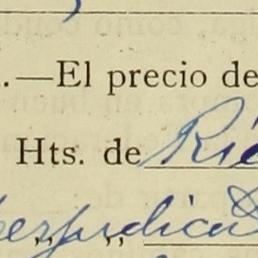 .—El precio de
Hts. de Rie
perjudica
„ „